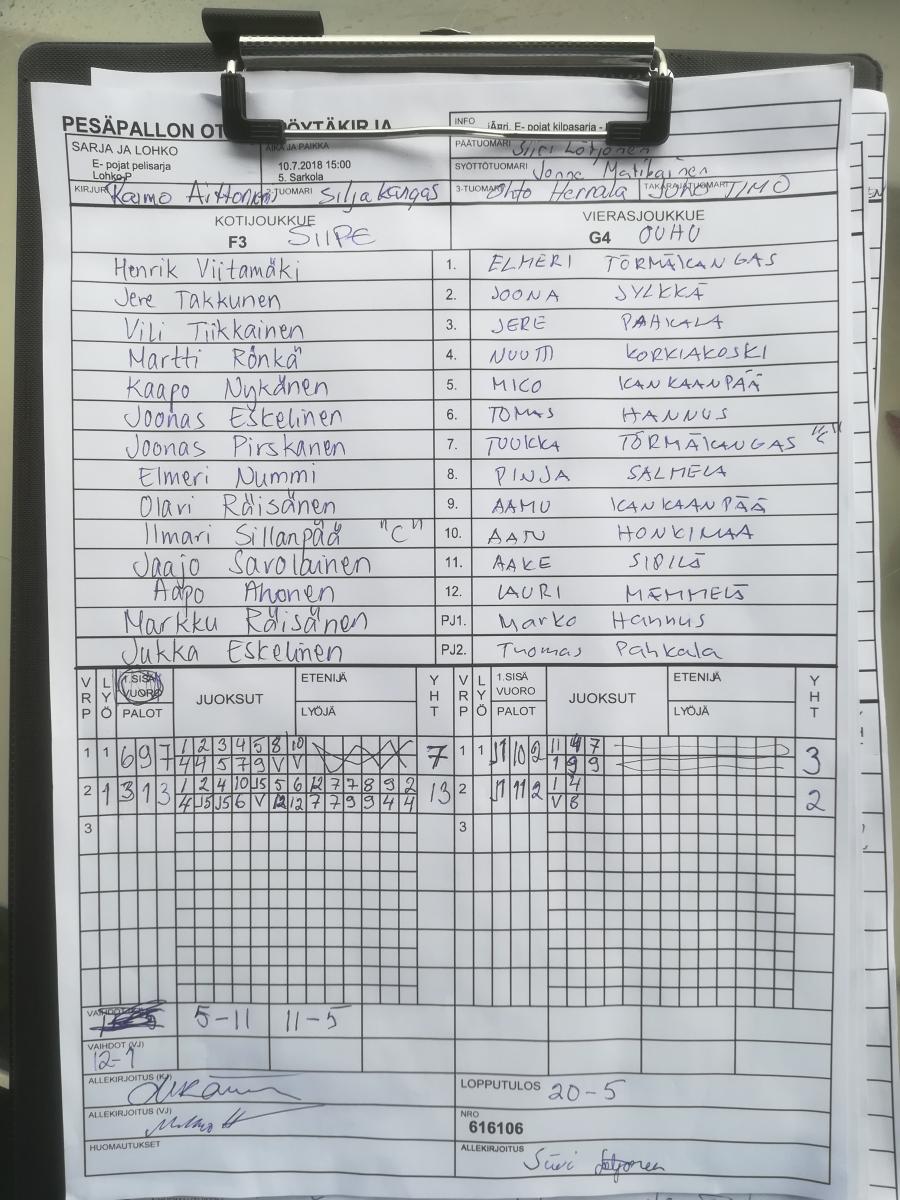 PESÄPALLON OT PÖYTÄKIRJA
INFO
E- pojat kilpasarja -
SARJA JA LOHKO
AIKA JA PAIKKA
PÄÄTUOMARI Siiri Lötjönen
E- pojat pelisarja
Lohko P
10.7.2018 15:00
5. Sarkola
SYÖTTÖTUOMARI Jonne Matikainen
KIRJURI Raimo
2-TUOMARI Silja Kangas
3-TUOMARI Ohto Herrala
TAKARAJATUOMARIT TIMO
KOTIJOUKKUE
F3 SIIPE
VIERASJOUKKUE
G4 OUHU
Henrik Viitamäki 1. ELMERI TÖRMÄKANGAS
Jere Takkunen 2. JOONA JYLKKÄ
Vili Tiikkainen 3. JERE PAHKALA
Martti Rönkä 4. NUUTTI KORKIAKOSKI
Kaapo Nykänen 5. MICO KANKAANPÄÄ
Joonas Eskelinen 6. TOMAS HANNUS
Joonas Pirskanen 7. TUUKKA TÖRMÄKANGAS "C"
Elmeri Nummi 8. PINJA SALMELA
Olavi Räisänen 9. AAMU KANKAANPÄÄ
Ilmari Sillanpää "C" 10. AATU HONKIMAA
Jaajo Savolainen 11. AAKE SIPILÄ
Aapo Ahonen 12. LAURI MÄMMELÄ
Markku Räisänen PJ1. Marko Hannus
Jukka Eskelinen PJ2. Tuomas Pahkala
VRP LYÖ 1.SISÄVUORO PALOT JUOKSUT ETENIJÄ LYÖJÄ YHT
VRP LYÖ 1.SISÄVUORO PALOT JUOKSUT ETENIJÄ LYÖJÄ YHT
1 1 6 9 7 1 2 3 4 5 8 10 7
4 4 5 7 9 V V
1 1 J1 10 2 11 4 7 3
1 9 9
2 1 3 1 3 1 2 4 10 J5 5 6 12 7 7 8 9 2 13
4 J5 J5 6 V 12 12 7 7 9 9 4 4
2 J1 11 2 1 4 2
V 6
3 3
5-11 11-5
VAIHDOT (VJ)
12-1
ALLEKIRJOITUS (KJ)
LOPPUTULOS 20-5
ALLEKIRJOITUS (VJ)
NRO
616106
HUOMAUTUKSET
ALLEKIRJOITUS
Siiri Lötjönen